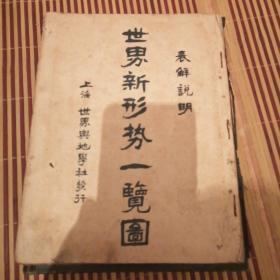 表解說明
世界新形势一覽圖
上海 世界輿地學社發行